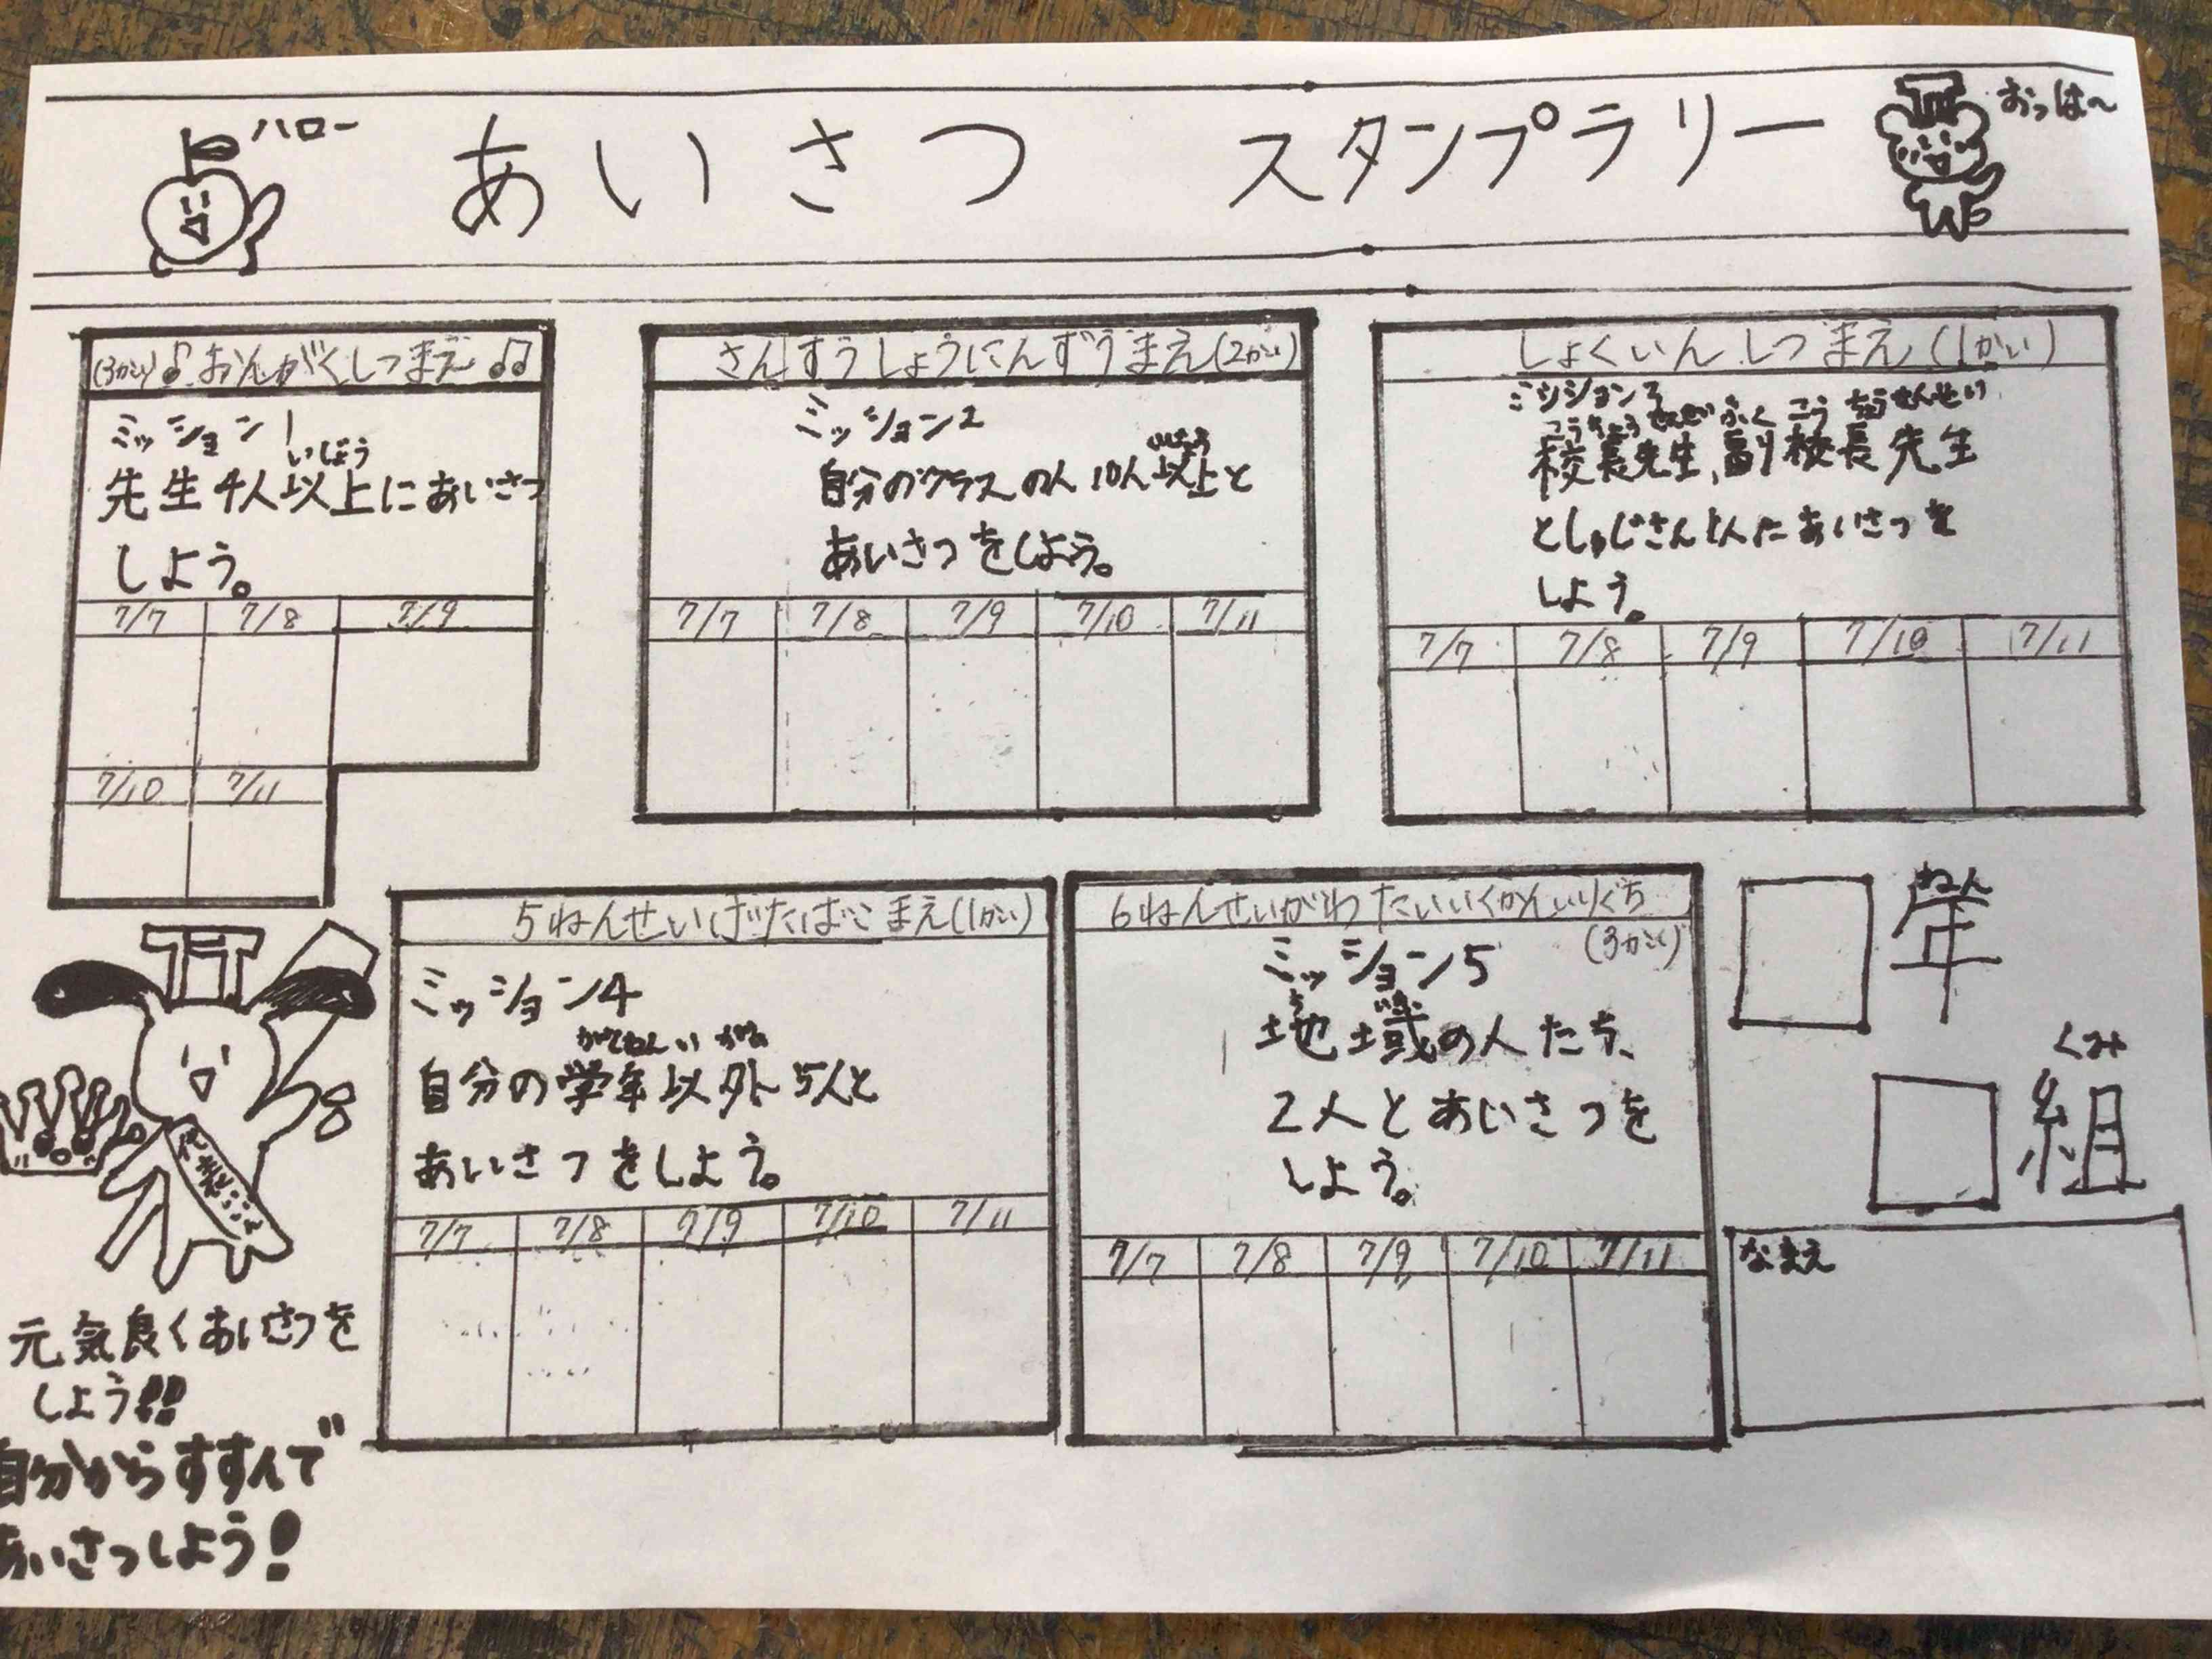 ハロー
あいさつ スタンプラリー
おっは〜
(3かい)♪おんがくしつまえ♫
ミッション1
いじょう
先生4人以上にあいさつ
しよう。
7/7 7/8 7/9
7/10 7/11
さんすうしょうにんずうまえ(2かい)
ミッション2
いじょう
自分のクラスの人10人以上と
あいさつをしよう。
7/7 7/8 7/9 7/10 7/11
しょくいんしつまえ(1かい)
ミッション3
こうちょうせんせい ふくこうちょうせんせい
校長先生、副校長先生
としゅじさん
あいさつを
しよう。
7/7 7/8 7/9 7/10 7/11
5ねんせいげたばこまえ(1かい)
ミッション4
がくねんいがい
自分の学年以外5人と
あいさつをしよう。
7/7 7/8 7/9 7/10 7/11
6ねんせいがわたいいくかんいりぐち
(3かい)
ミッション5
ちいき
地域の人たち、
2人とあいさつを
しよう。
7/7 7/8 7/9 7/10 7/11
ねん
年
くみ
組
なまえ
元気良くあいさつを
しよう!!
自分からすすんで
あいさつしよう!